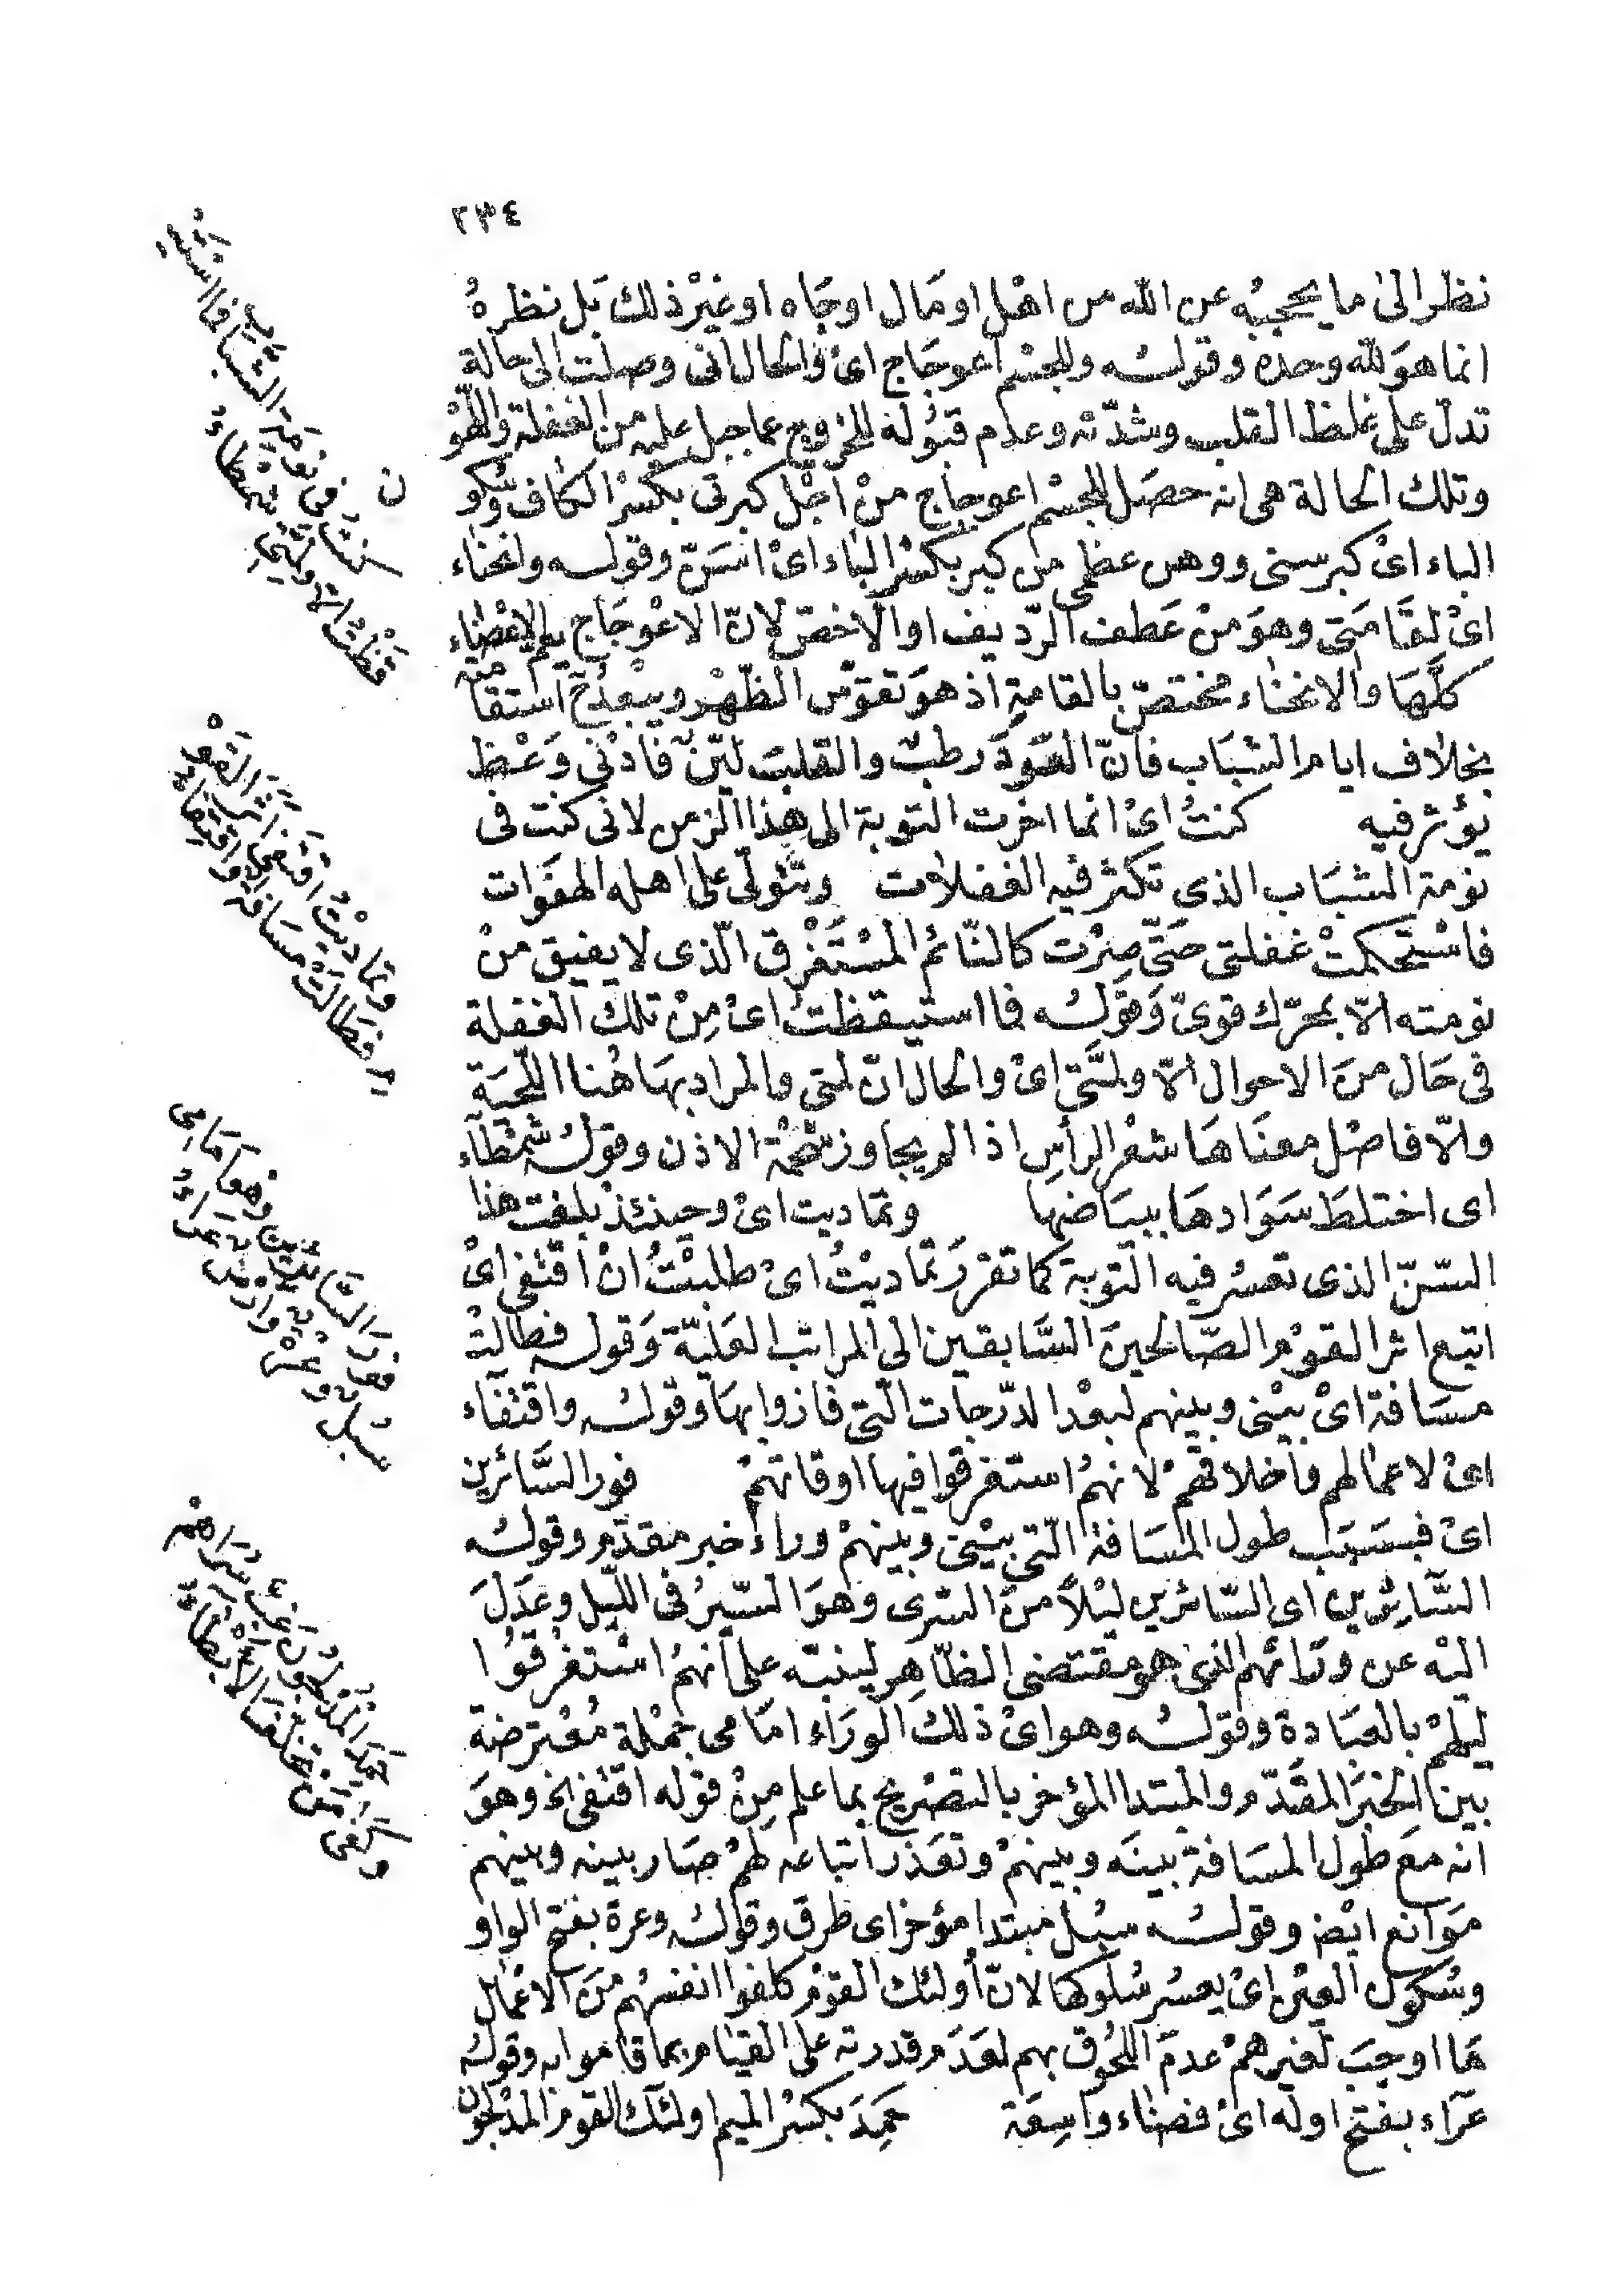 ٢٣٤
نظرا الى ما يحجبه عن الله من اهل او مال او جاه او غير ذلك بل نظره
انما هو لله وحده وقوله وللجسم اعوجاج اى والحال انى وصلت الى حالة
تدل على غلظ القلب وشدّته وعدم قبوله للخروج عما جبل عليه من الغفلة واللهو
وتلك الحالة هى انه حصل للجسم اعوجاج من اجل كبرتى بكسر الكاف وسكو
الباء اى كبر سنى ووهن عظمى من كبر بكسر الباء اى اسنّ وقوله وانحناء
اى لقامتى وهو من عطف الرّديف او الاخصّ لانّ الاعوجاج يعم الاعضاء
كلّها والانحناء مختصّ بالقامة اذ هو تقوّس الظّهر ويبعد ح استقا منه
بخلاف ايام الشباب فانّ العود رطب والقلب ليّن فادنى وعظ
يؤثر فيه كنت اى انما اخرت التوبة الى هذا الزمن لانى كنت فى
نومة الشباب الذى تكثر فيه الغفلات وتتولى على اهله الهفوات
فاستحكمت غفلتى حتّى صرت كالنّائم المستغرق الّذى لا يفيق من
نومته الّا بمحرّك قوىّ وقوله فما استيقظت اى من تلك الغفلة
فى حال من الاحوال الّا ولمّتى اى والحال انّ لمتى والمراد بها هنا اللّحية
والّا فاصل معناها شعر الرأس اذا لم يجاوز شحمة الاذن وقوله شمطآء
اى اختلط سوادها ببياضها وتماديت اى وحينئذ بلغت هذا
السّنّ الذى تعسر فيه التوبة كما تقرر تماديت اى طلبت ان اقتفى اى
اتبع اثر القوم الصّالحين السّابقين الى المراتب العليّة وقوله فطالت
مسافة اى بينى وبينهم لبعد الدّرجات الّتى فازوا بها وقوله واقتفآء
اى لاعمالهم واخلاقهم لانهم استغرقوا فيها اوقاتهم فورا السّائرين
اى فبسبب طول المسافة الّتى بينى وبينهم وراء خبر مقدّم وقوله
السّائرين اى السّائرين ليلًا من السّرى وهو السّير فى اللّيل وعدل
اليه عن ورائهم الذى هو مقتضى الظّاهر لينبّه على انهم استغرقوا
ليلهم بالعبادة وقوله وهو اى ذلك الوراء امامى جملة معترضة
بين الخبر المقدّم والمبتدا المؤخر بالتصريح بما علم من قوله اقتفى الخ وهو
انه مع طول المسافة بينه وبينهم وتعذر اتباعه لهم صار بينه وبينهم
موانع ايض وقوله سبل مبتدا مؤخر اى طرق وقوله وعرة بفتح الواو
وسكون العين اى يعسر سلوكها لانّ أولئك القوم كلفوا انفسهم من الاعمال
ما اوجب لغيرهم عدم اللّحوق بهم لعدم قدرته على القيام بما قاموا به وقوله
عرآء بفتح اوله اى فضاء واسعة حمد بكسر الميم اولئك القوم المدلجون
كنت فى نومة الشباب فما استيـ
ـقظت الّا ولمّتى شمطاء
وتماديت اقتفى اثر القو
م فطالت مسافة واقتفاء
فورا السّائرين وهو امامى
سبل وعرة وارض عراء
حمد المدلجون غبّ سراهم
وكفى من تخلّف الابطاء